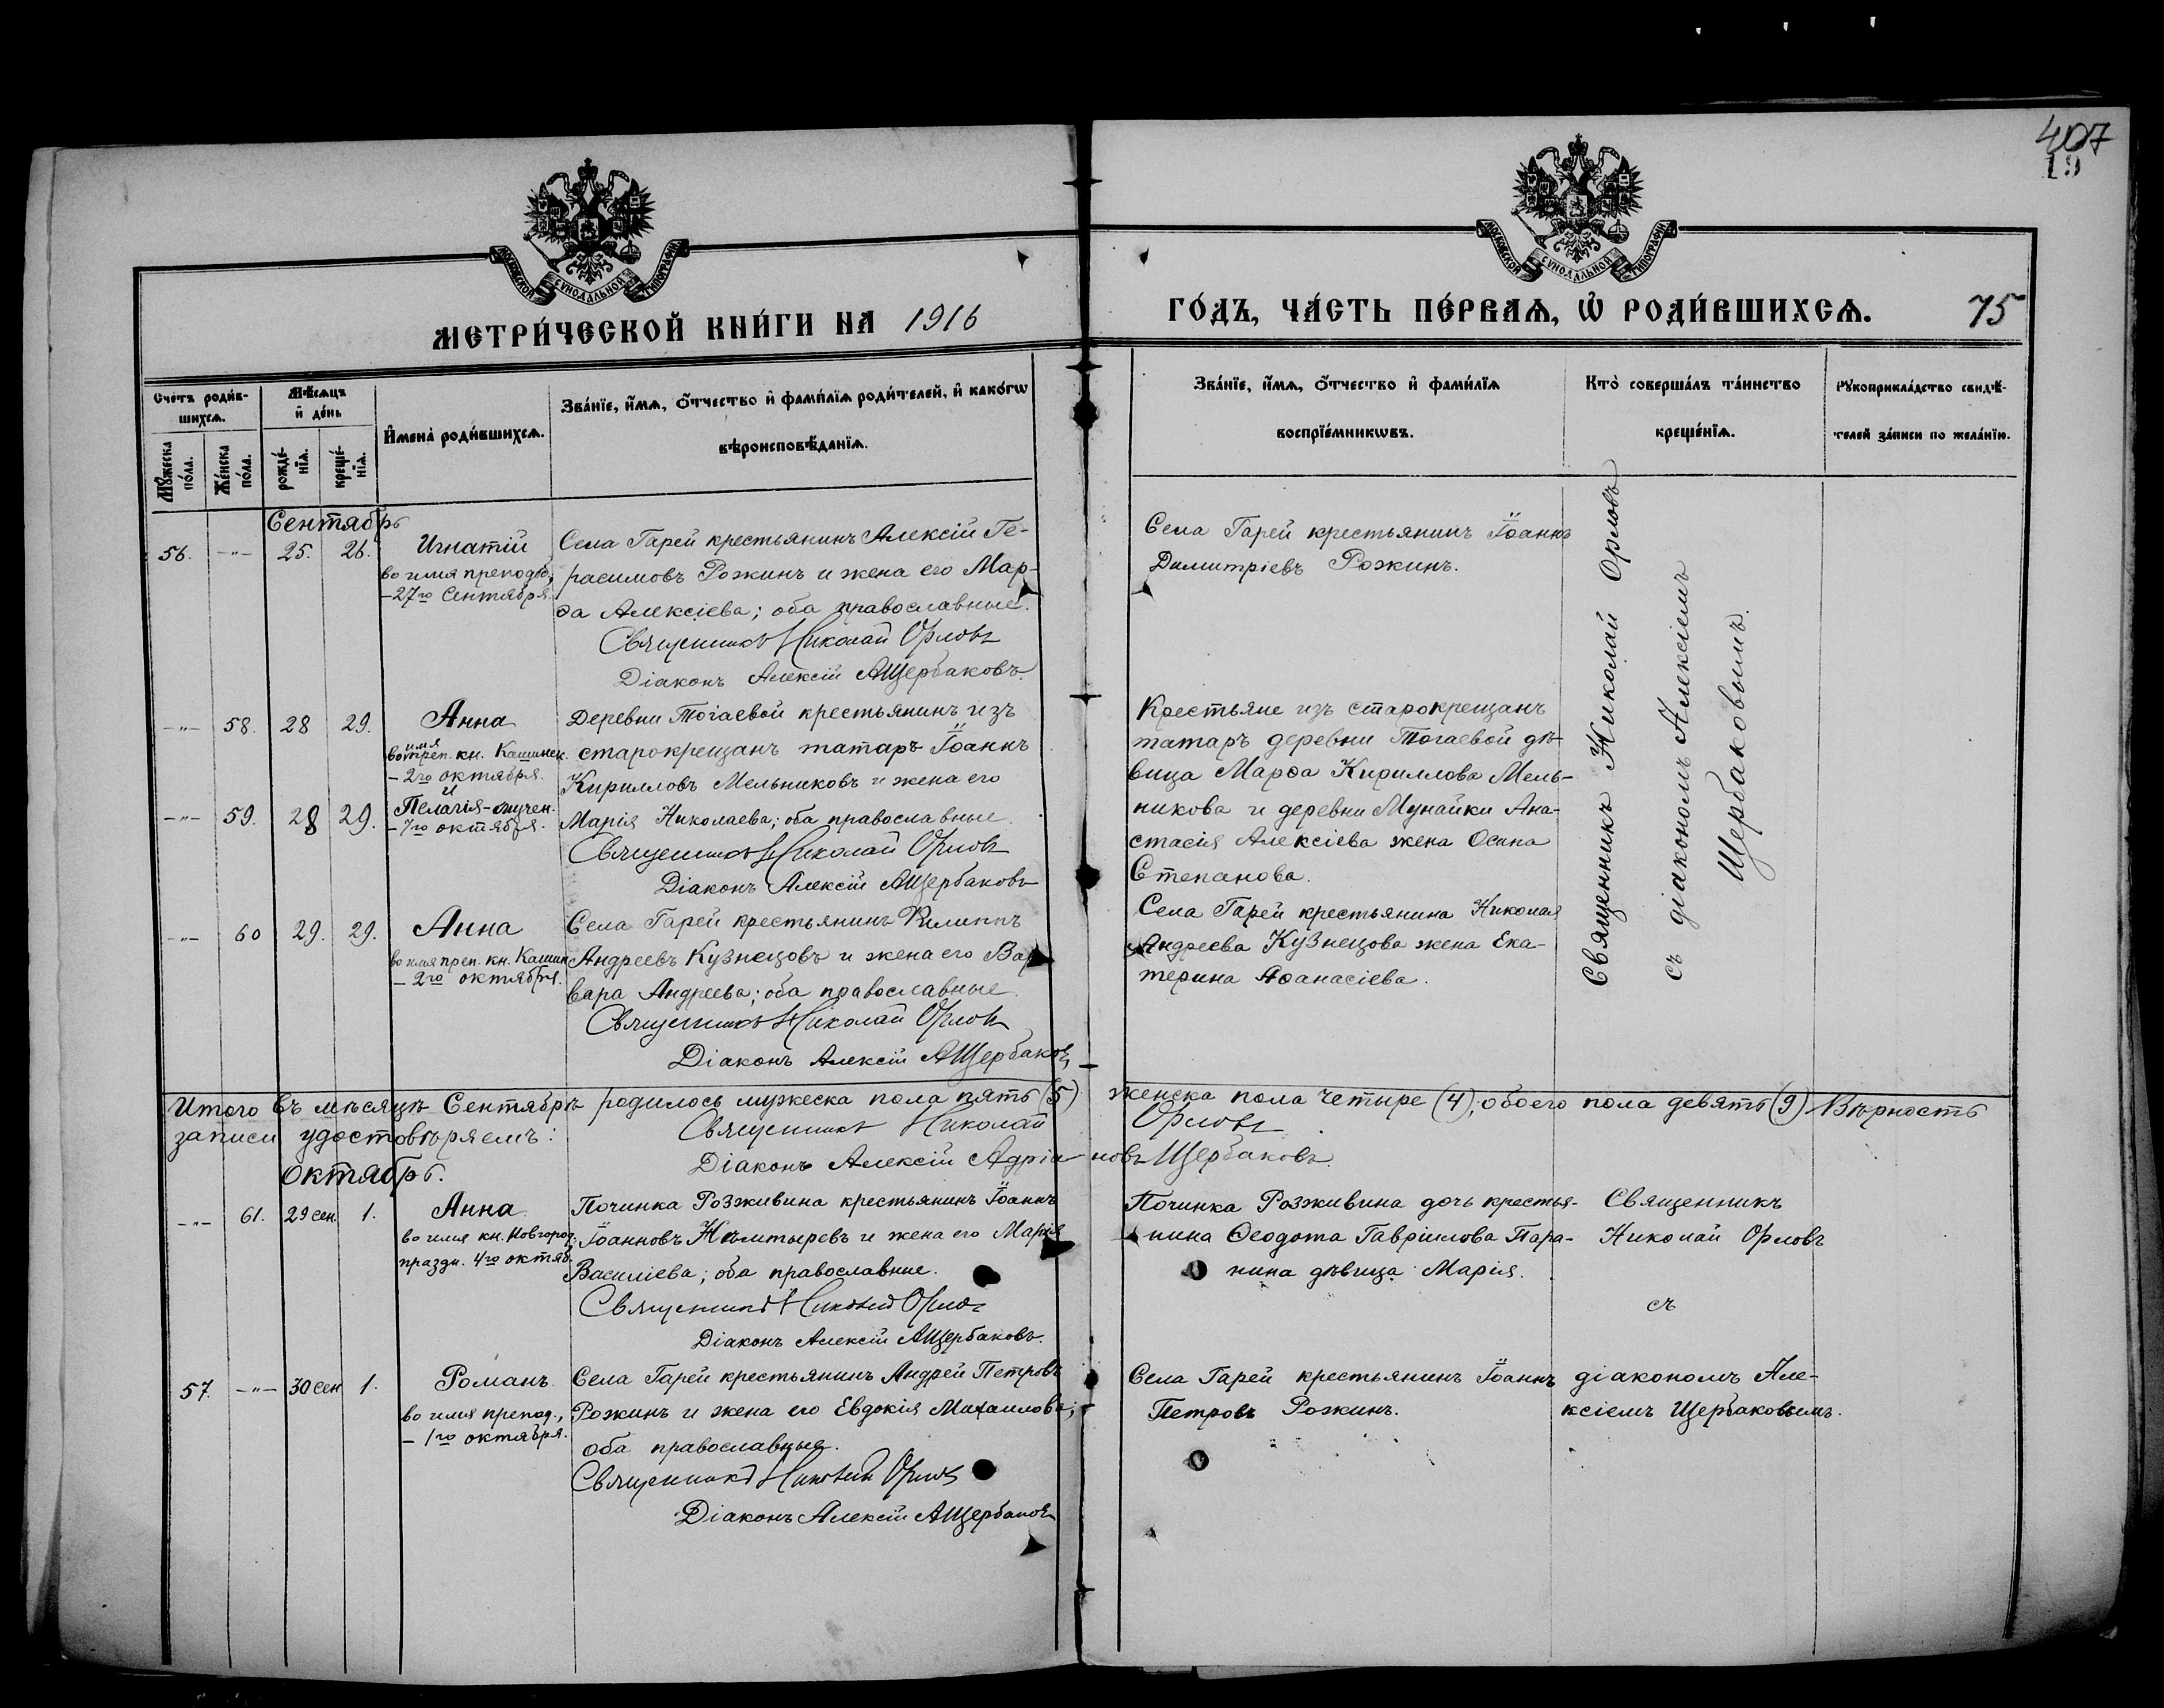 407
МОСКОВСКОЙ СѴНОДАЛЬНОЙ ТИПОГРАФІИ
МОСКОВСКОЙ СѴНОДАЛЬНОЙ ТИПОГРАФІИ
МЕТРИ́ЧЕСКОЙ КНИ́ГИ НА 1916
ГО́ДЪ, ЧА́СТЬ ПЕ́РВАѦ, Ѡ҆ РОДИ́ВШИХСѦ. 75
Сче́тъ роди́в-
шихсѧ.
Мѣ́сѧцъ
и҆ де́нь
И҆мена̀ роди́вшихсѧ.
Зва́нїе, и҆́мѧ, ѻ҆́тчество и҆ фами́лїѧ роди́телей, и҆ како́гѡ
вѣроисповѣ́данїѧ.
Мꙋ́жеска
по́ла.
Же́нска
по́ла.
рожде́-
нїѧ.
креще́-
нїѧ.
Зва́нїе, и҆́мѧ, ѻ҆́тчество и҆ фами́лїѧ
воспрїе́мникѡвъ.
Кто̀ соверша́лъ та́инство
креще́нїѧ.
Рꙋкоприкла́дство свидѣ́-
телей за́писи по жела́нїю.
Сентябрь
56. -"- 25. 26. Игнатій
во имя преподоб,
-27го Сентября.
Села Гарей крестьянинъ Алексій Ге-
расимовъ Рожинъ и жена его Мар-
ѳа Алексіева; оба православные.
Священникъ Николай Орловъ
Діаконъ Алексій АЩербаковъ.
Села Гарей крестьянинъ Іоаннъ
Димитріевъ Рожинъ.
-"- 58. 28 29. Анна
во имя преп. кн. Кашинск.
- 2го октября.
и
-"- 59. 28 29. Пелагія-мучен.
- 7го октября.
Деревни Тогаевой крестьянинъ изъ
старокрещанъ татаръ Іоаннъ
Кирилловъ Мельниковъ и жена его
Марія Николаева; оба православные.
Священникъ Николай Орловъ
Діаконъ Алексій АЩербаковъ
Крестьяне изъ старокрещанъ
татаръ деревни Тогаевой дѣ-
вица Марѳа Кириллова Мель-
никова и деревни Мунайки Ана-
стасія Алексіева жена Осипа
Степанова.
-"- 60 29. 29. Анна
во имя преп. кн. Кашин
- 2го октября.
Села Гарей крестьянинъ Филиппъ
Андреевъ Кузнецовъ и жена его Вар-
вара Андреева; оба православные.
Священникъ Николай Орловъ
Діаконъ Алексій АЩербаковъ
Села Гарей крестьянина Николая
Андреева Кузнецова жена Ека-
терина Аѳанасіева.
Священникъ Николай Орловъ
съ діакономъ Алексіемъ
Щербаковымъ.
Итого въ мѣсяцѣ Сентябрѣ родилось мужеска пола пять (5) женска пола четыре (4), обоего пола девять (9) Вѣрность
записи удостовѣряемъ: Священникъ Николай Орловъ
Діаконъ Алексій Адріановъ Щербаковъ.
Октябрь.
-"- 61. 29 сен. 1. Анна
во имя кн. Новгород,
праздн. 4го октяб.
Починка Розживина крестьянинъ Іоаннъ
Іоанновъ и жена его Марія
Василіева; оба православные.
Священникъ Николай Орловъ
Діаконъ Алексій АЩербаковъ.
Починка Розживина дочь крестья-
нина Ѳеодота Гавріилова Пара-
нина дѣвица Марія.
Священникъ
Николай Орловъ
съ
57. -"- 30 сен 1. Романъ
во имя препод.,
- 1го октября.
Села Гарей крестьянинъ Андрей Петровъ
Рожинъ и жена его Евдокія Михаилова;
оба православные.
Священникъ Николай Орловъ
Діаконъ Алексій АЩербаковъ
Села Гарей крестьянинъ Іоаннъ
Петровъ Рожинъ.
діакономъ Але-
ксіемъ Щербаковымъ.